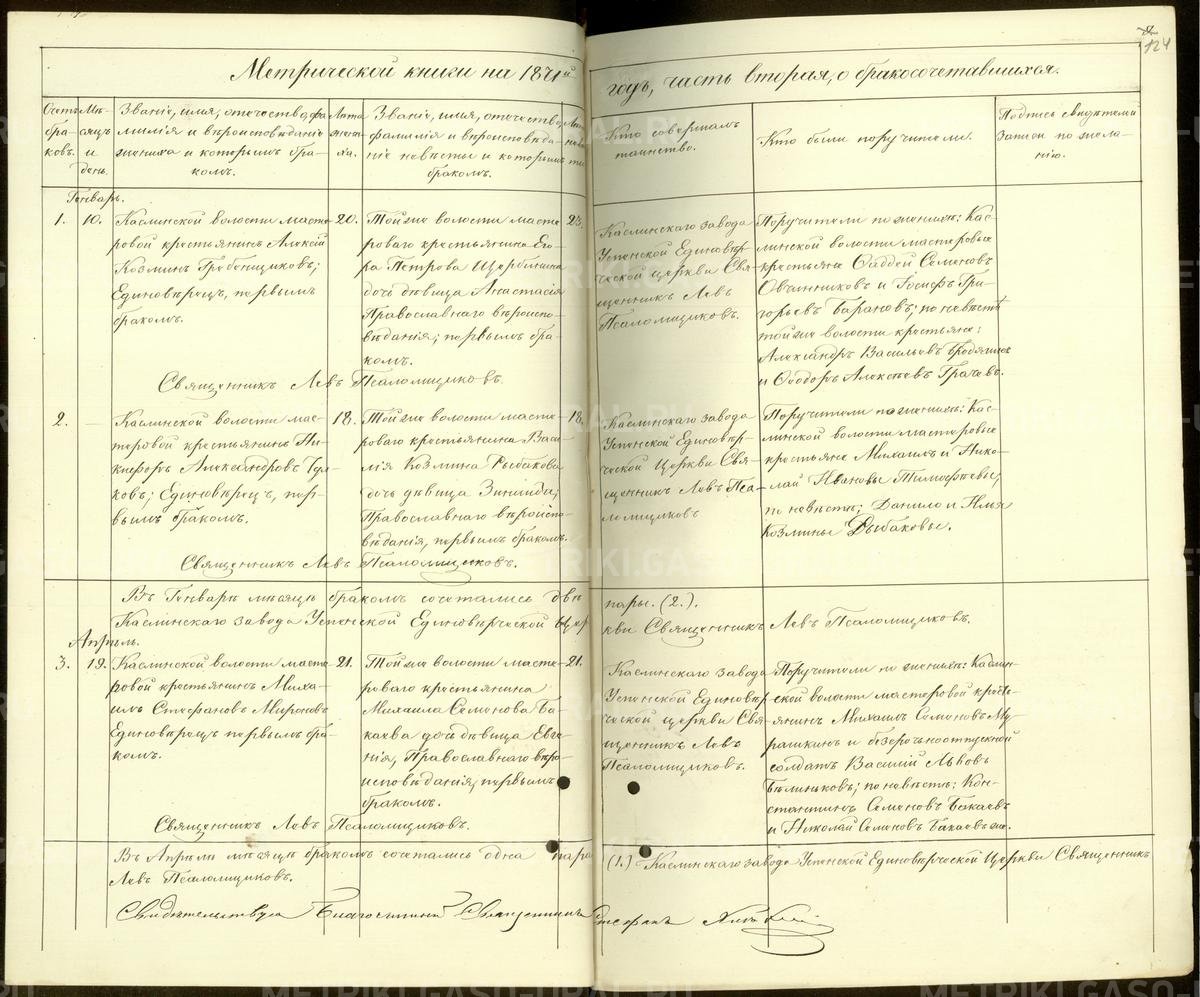 124
Метрической книги на 1871й
годъ, часть вторая, о бракосочетавшихся.
Счетъ бра-
ковъ.
Мѣ-
сяцъ
и
день.
Званіе, имя, отечество, фа-
милія и вѣроисповѣданіе
жениха и которымъ бра-
комъ.
Лѣта
жени-
ха.
Званіе, имя, отечество,
фамилія и вѣроисповѣда-
ніе невѣсты и которымъ
бракомъ.
Кто совершалъ
таинство.
Кто были поручители.
Подпись свидѣтелей
записи по жела-
нію.
Генварь.
1.
10.
Каслинской волости масте-
ровой крестьянинъ Алексій
Козминъ Гребенщиковъ;
Единовѣрецъ, первымъ
бракомъ.
20.
Той же волости масте-
роваго крестьянина Его-
ра Петрова Щербинина
дочь дѣвица Анастасія
Православнаго вѣроиспо-
вѣданія; первымъ бра-
комъ.
23.
Каслинскаго завода
Успенской Единовѣр-
ческой церкви Свя-
щенникъ Левъ
Псаломщиковъ.
Поручители по женихѣ: Кас-
линской волости мастеровые
крестьяне Фаддей Семеновъ
Овчинниковъ и Іосифъ Гри-
горьевъ Барановъ; по невѣстѣ
той же волости крестьяне:
Александръ Васильевъ
и Ѳеодоръ Алексѣевъ Грачевъ.
Священникъ Левъ Псаломщиковъ.
2.
Каслинской волости мас-
теровой крестьянинъ Ни-
кифоръ Александровъ
ковъ; Единовѣрецъ, пер-
вымъ бракомъ.
18.
Той же волости масте-
роваго крестьянина Васи-
лія Козмина Рыбакова
дочь дѣвица Зинаида;
Православнаго вѣроиспо-
вѣданія, первымъ бракомъ.
18.
Каслинскаго завода
Успенской Единовѣр-
ческой Церкви Свя-
щенникъ Левъ Пса-
ломщиковъ
Поручители по женихѣ: Кас-
линской волости мастеровые
крестьяне Михаилъ и Нико-
лай Ивановы Тимофѣевы;
по невѣстѣ; Данило и Илья
Козмины Рыбаковы.
Священникъ Левъ Псаломщиковъ.
Въ Генварѣ мѣсяцѣ бракомъ сочетались двѣ пары. (2.).
Каслинскаго завода Успенской Единовѣрческой Церкви Священникъ Левъ Псаломщиковъ.
Апрѣль.
3.
19.
Каслинской волости масте-
ровой крестьянинъ Миха-
илъ Стефановъ Мироновъ
Единовѣрецъ первымъ бра-
комъ.
21.
Той же волости масте-
роваго крестьянина
Михаила Семенова Ба-
каева дочь дѣвица Евге-
нія, Православнаго вѣро-
исповѣданія, первымъ
бракомъ.
21.
Каслинскаго завода
Успенской Единовѣр-
ческой церкви Свя-
щенникъ Левъ
Псаломщиковъ.
Поручители по женихѣ: Каслин-
ской волости мастеровой кресть-
янинъ Михаилъ Семеновъ Му-
рашкинъ и безсрочноотпускной
солдатъ Василій Львовъ
Бѣлиньковъ; по невѣстѣ: Кон-
стантинъ Семеновъ Бакаевъ
и Николай Семеновъ Бакаевъ же.
Священникъ Левъ Псаломщиковъ.
Въ Апрѣлѣ мѣсяцѣ бракомъ сочетались одна пара (1.) Каслинскаго завода Успенской Единовѣрческой Церкви Священникъ
Левъ Псаломщиковъ.
Свидѣтельствовалъ Благочинный Священникъ Стефанъ
METRIKI.GASO-URAL.RU